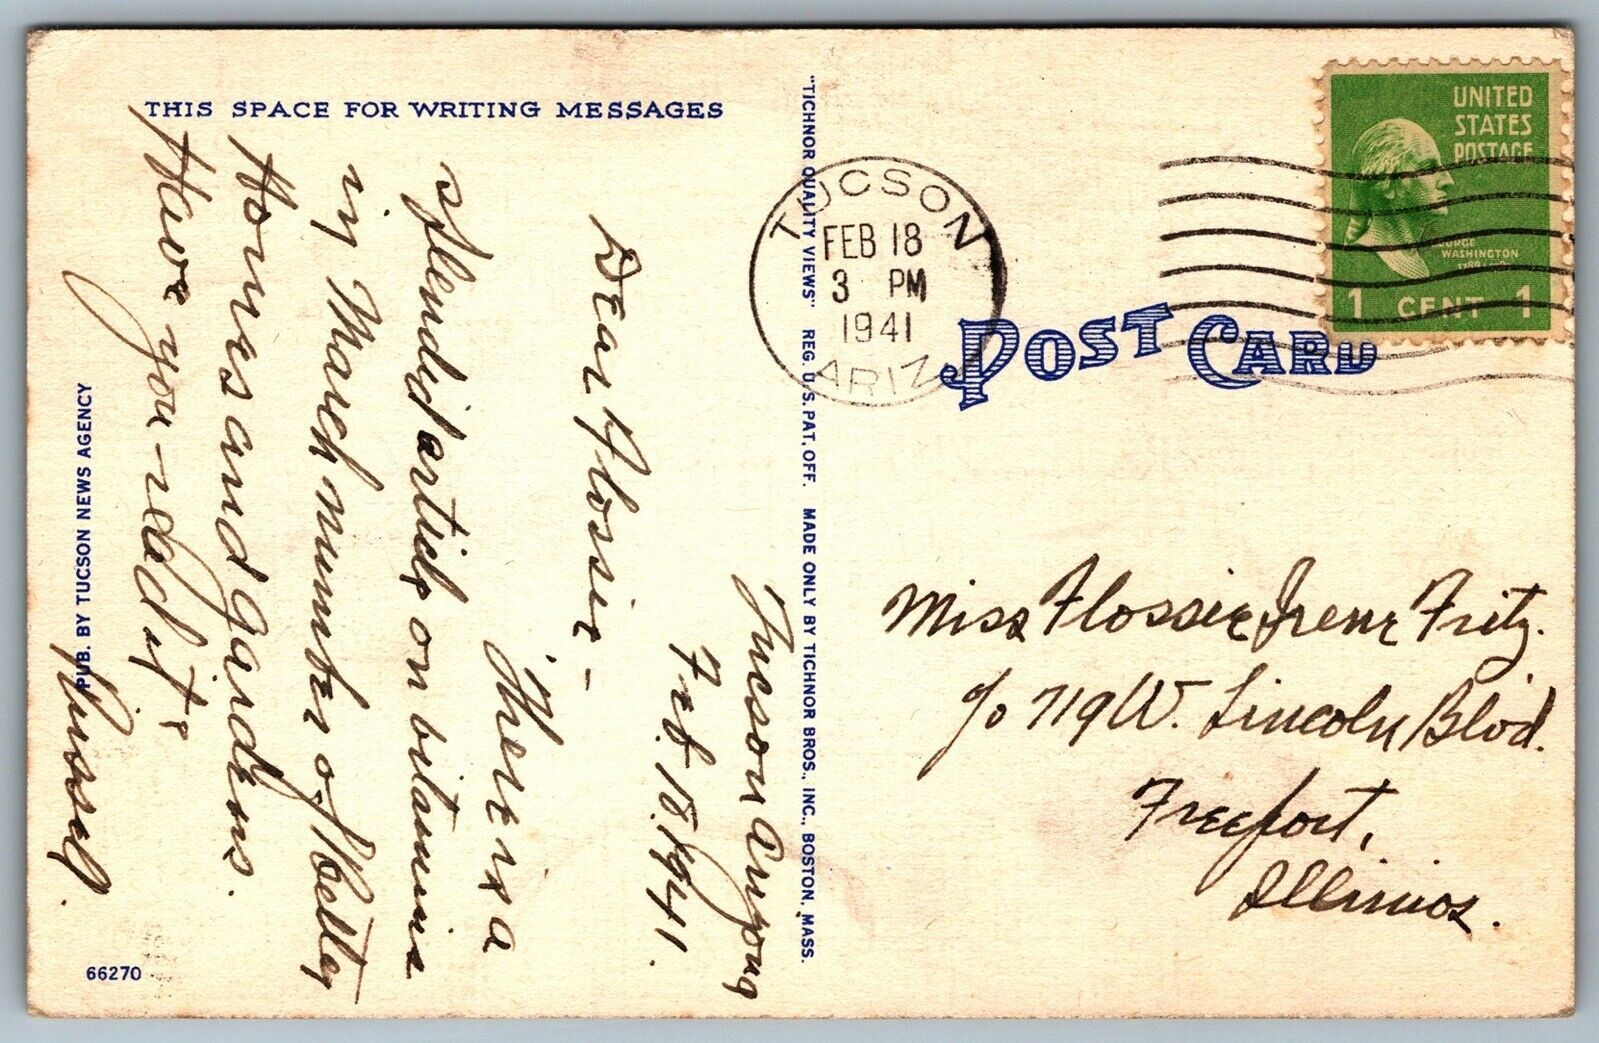 THIS SPACE FOR WRITING MESSAGES
Tucson Arizona
Feb. 18, 1941.
Dear Flossie -
There is a
splendid article on vitamins
in March number of Better
Homes and Gardens.
Have you read it?
Russel.
PUB. BY TUCSON NEWS AGENCY
66270
"TICHNOR QUALITY VIEWS" REG. U.S. PAT. OFF. MADE ONLY BY TICHNOR BROS., INC., BOSTON, MASS.
TUCSON
FEB 18
3 PM
1941
ARIZ
POST CARD
UNITED
STATES
POSTAGE
GEORGE
WASHINGTON
1 CENT 1
Miss Flossie Irene Fritz.
c/o 719 W. Lincoln Blvd.
Freeport,
Illinios.